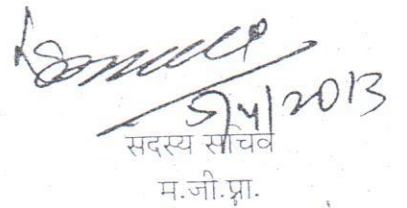 5/4/2013
सदस्य सचिव
म.जी.प्रा.